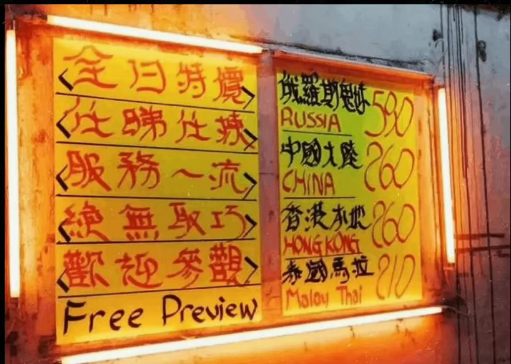 全日特價
任睇任揀
服務一流
絕無取巧
歡迎參觀
Free Preview
俄羅斯鬼妹 580
RUSSIA
中國大陸 260
CHINA
香港本地 260
HONG KONG
泰國馬拉 210
Malay Thai